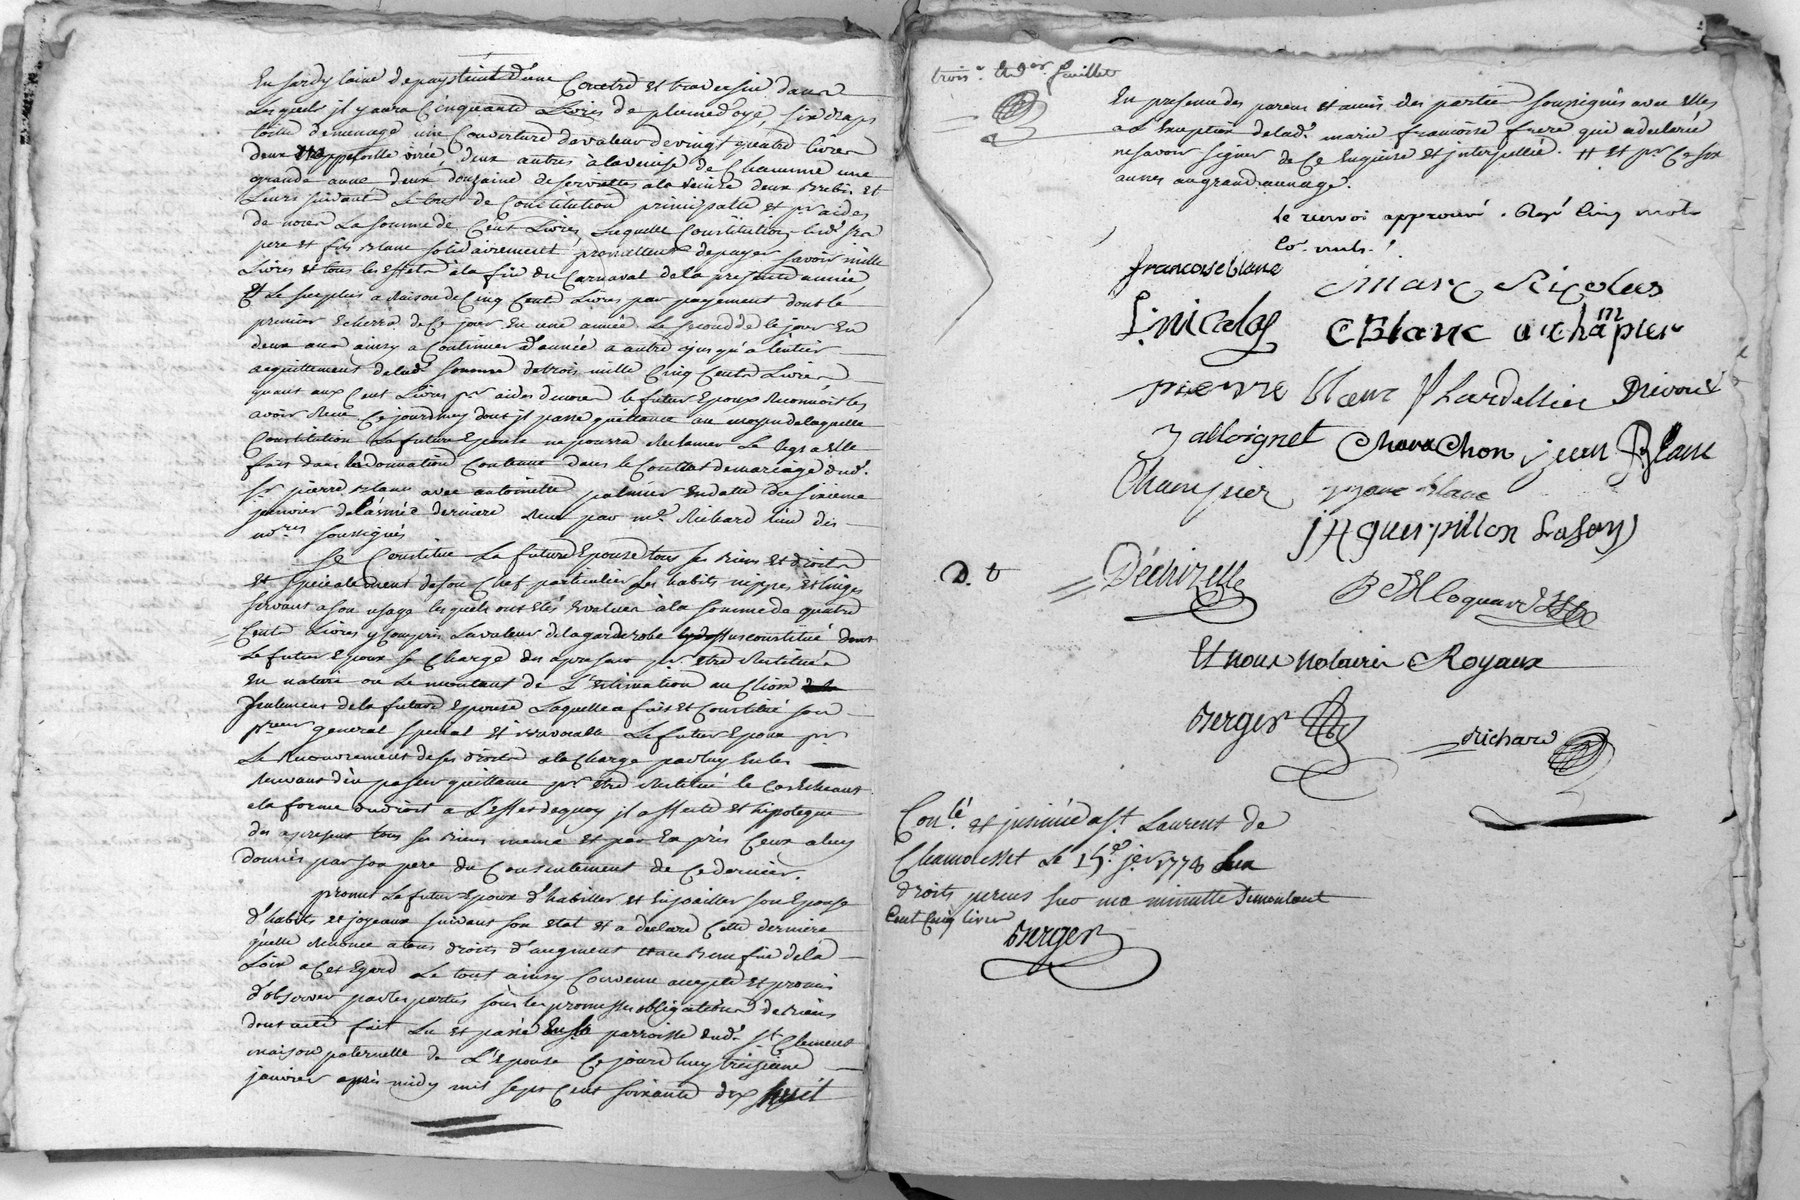 en sardy laine de pays teint d'une Couetre et traversin dans
lesquels jl y aura Cinquante Livres de plume d'oye, six draps
toille de menage une Couverture de valeur de vingt quatre livres
deux nappes toille virée, deux autres à la venise de Chacune une
grande aune deux douzaine de serviettes a la Venize deux Brebis et
Leurs suivants Le tout de Constitution principalle et pr aides
de noces La somme de Cent Livres, Laquelle Constitution led. sr
pere et fils Blanc solidairement promettent de payer savoir mille
Livres et tous les effets à la fin du Carnaval de la presente année
Et Le surplus a Raison de Cinq Cents Livres par payement dont le
premier Echerra de Ce jour En une année Le second de le jour En
deux ans ainsy a Continuer d'année a autre jusqu'a l'entier
acquittement de lad. somme de trois mille Cinq Cents Livres
quant aux Cent Livres pr aides de noces le futur Epoux Reconnoit les
avoir Reçu Cejourdhuy dont jl passe quittance au moyen de laquelle
Constitution La future Epouse ne pourra Reclamer Le legs a Elle
fait dans la donnation Contenue dans le Contrat de mariage dud.
sr pierre Blanc avec antoinette palmier en datte du sixieme
janvier de l'année derniere Reçu par me. Richard l'un des
nores soussignés
Se Constitue La future Epouse tous ses Biens et droits
Et specialement de son Chef particulier Ses habits nippes et linges
servant a son usage lesquels ont Etés Evaluer à la somme de quatre
Cents Livres y Compris La valeur de la garderobe cy dessus constitué dont
Le futur Epoux se Charge des apresent pr Etre Restitué
En nature ou Le montant de L'estimation au Choix
seulement de la future Epouse Laquelle a fait et Constitué son
preur general special et irrevocable Le futur Epoux pr
Le Recouvrement de ses droits a la Charge par luy En les
Recevant d'en passer quittance pr Etre Restitué le Cas Echeant
a la forme du droit a L'effet de quoy jl affecte et hipoteque
des apresent tous ses Biens meme et par Exprès Ceux a luy
donnés par son pere du Consentement de Ce dernier.
promet Le futur Epoux d'habiller et Enjoailler son Epouse
d'habits et joyeaux suivant son Etat et a declaré Cette derniere
qu'elle Renonce a tous droits d'augment et au Benefice de la
Loix a Cet Egard Le tout ainsy Convenu accepté et promis
d'observer par les parties sous les promesses obligations de Biens
dont acte fait Lu et passé En la parroisse dud. St Clement
maison paternelle de L'Epouse Ce jourd'huy treizieme
janvier après midy mil sept Cent soixante dix huit
trois.e et der. feuillet
En presence des parens et amis des parties soussignés avec Elles
a L'exception de lad.e marie francoise frere qui a declaré
ne savoir signer de Ce Enquise et jnterpellée. # et pr Ce six
aunes au grand aunage.
le renvoi approuvé. Rayé Cinq mots
francoise blanc
Marc Nicolas
f. nicolas
CBlanc
a. champier
pierre blanc
P Lardellier
Drivon
J alloignet
Chavachon
jean Blanc
Champier
jacques pillon
Lafay
D. t
Déchizelle
B Coquard
Et nous notaires Royaux
Berger
Richard
Conlé. et jnsinué a St. Laurent de
Chamousset Le 15e. jer 1778 Les
droits perçus sur ma minutte se montant
Cent Cinq livres
Berger